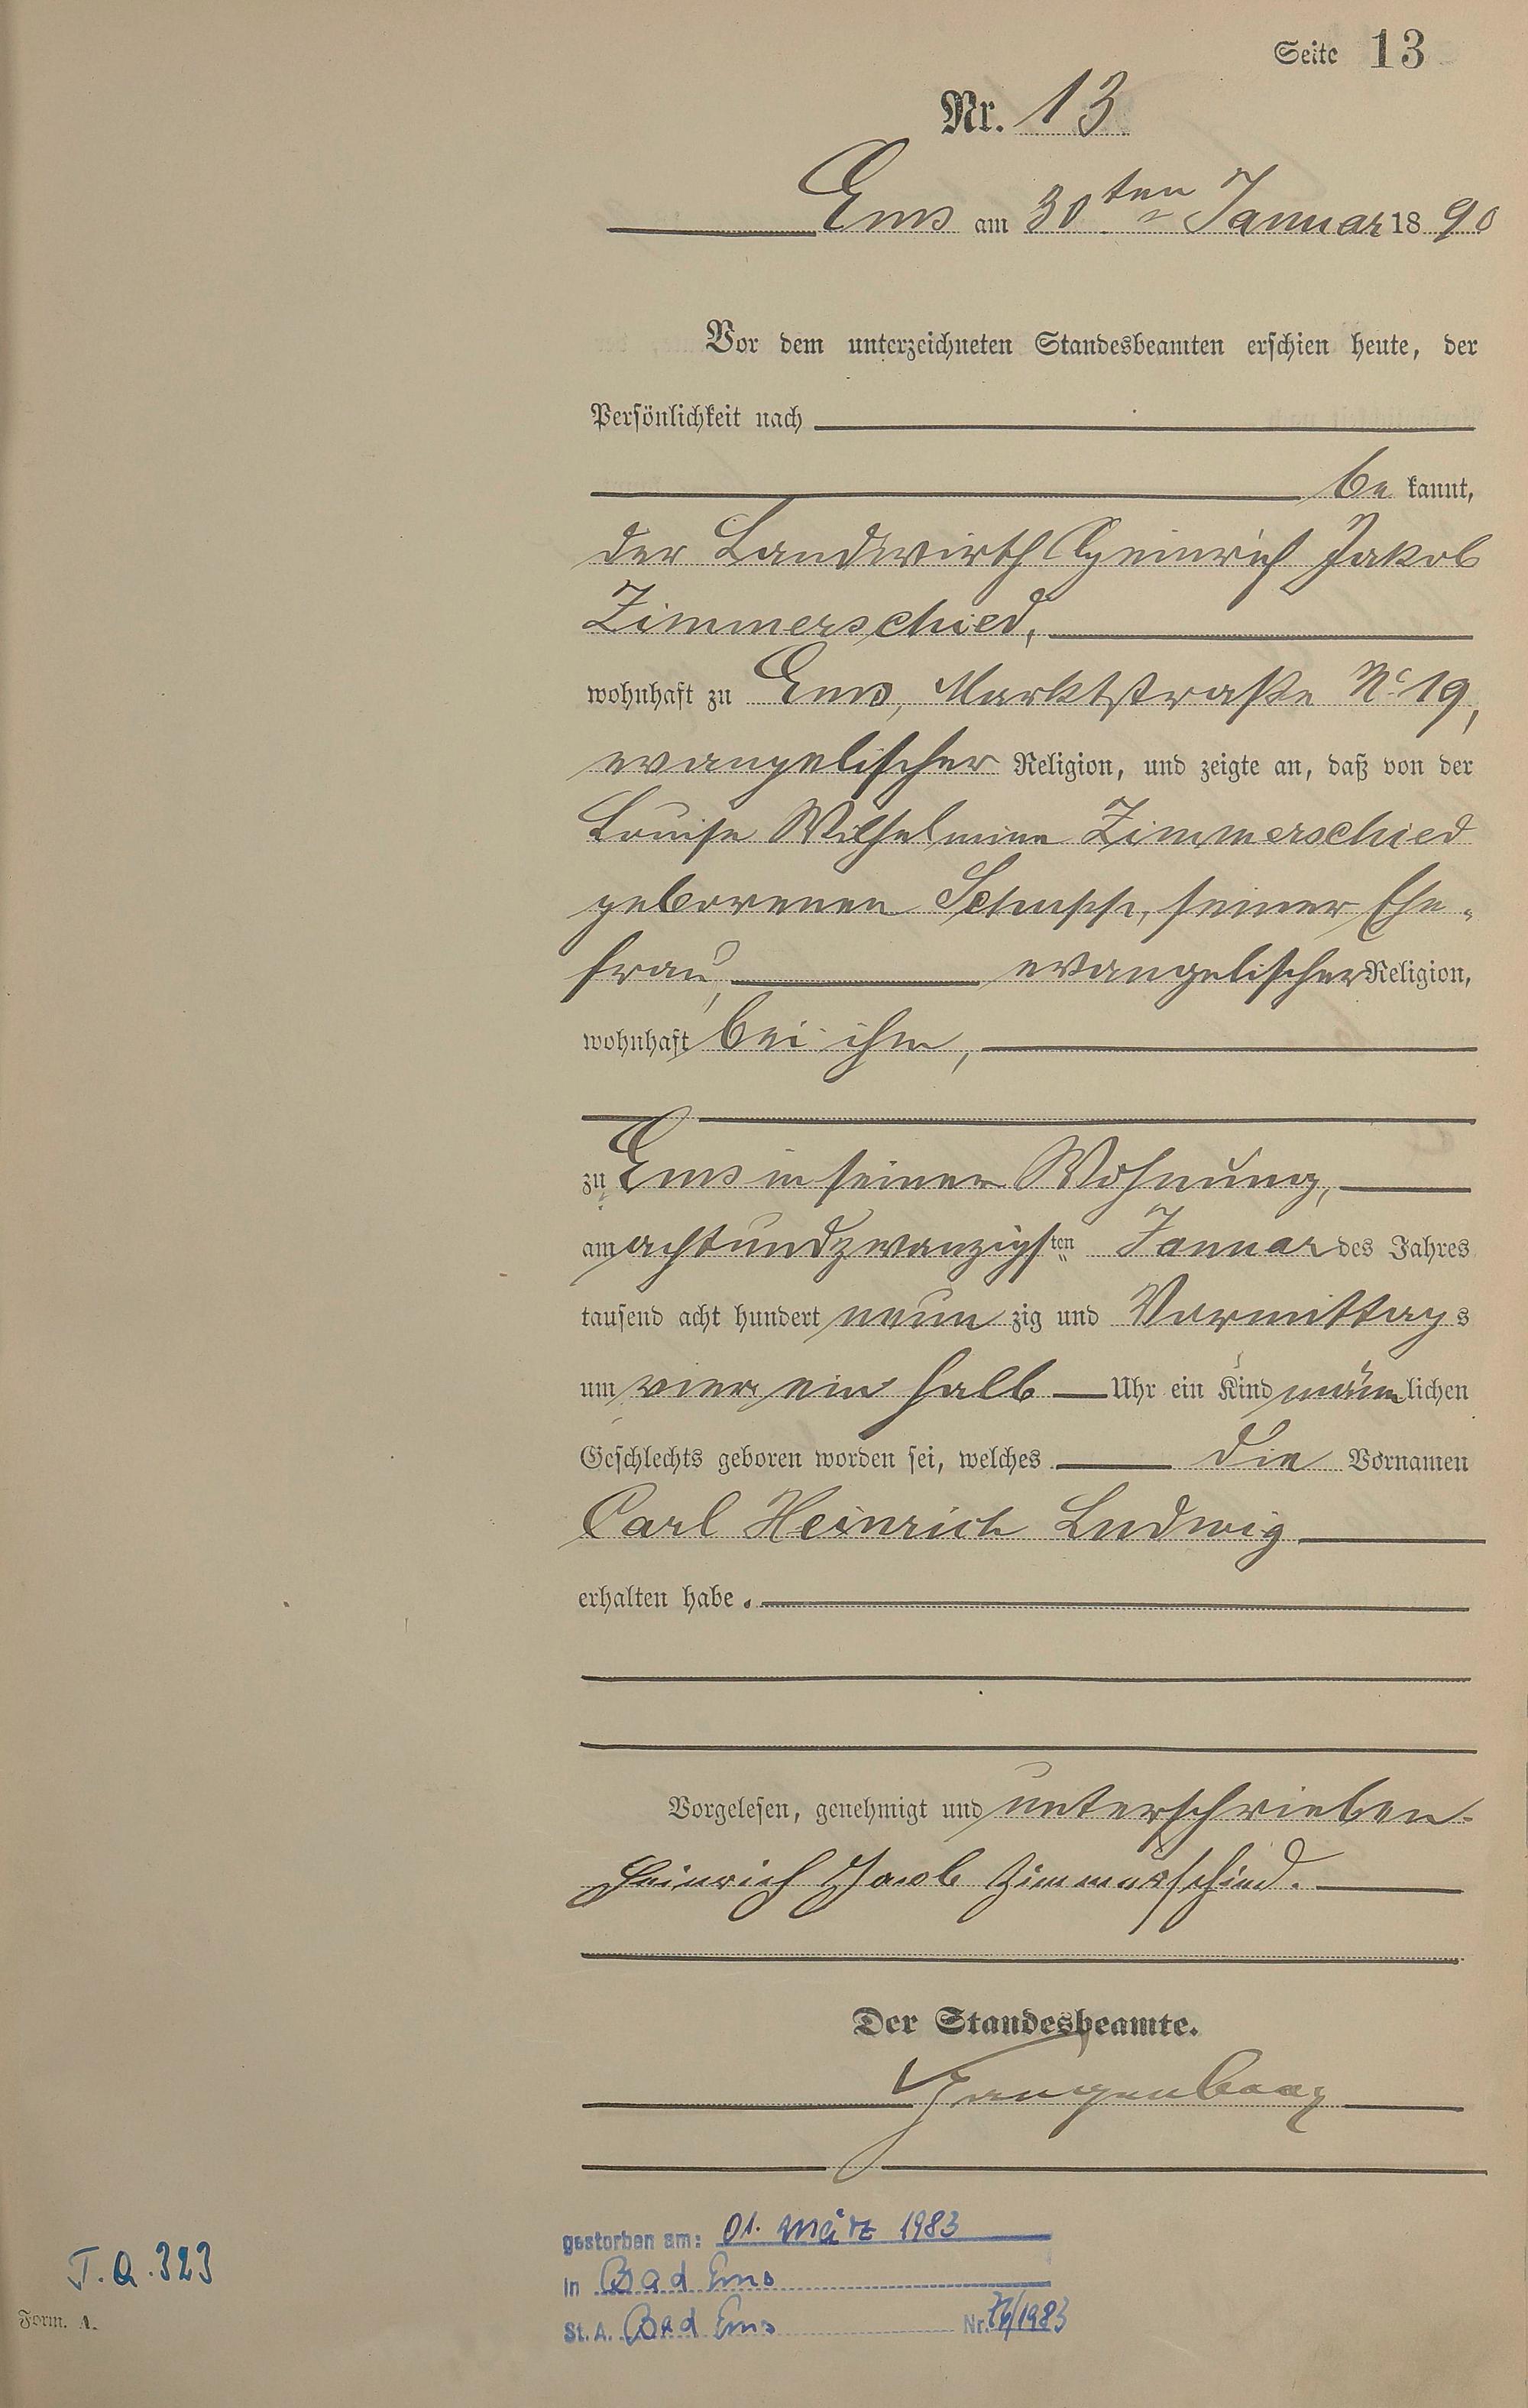 Seite 13
Nr. 13
Ems am 30ten Januar 1890
Vor dem unterzeichneten Standesbeamten erschien heute, der
Persönlichkeit nach
be kannt,
der Landwirth Heinrich Jakob
Zimmerschied,
wohnhaft zu Ems, Marktstraße No 19,
evangelischer Religion, und zeigte an, daß von der
Louise Wilhelmine Zimmerschied
geborenen Schupp, seiner Ehe-
frau, evangelischer Religion,
wohnhaft bei ihm,
zu Ems in seiner Wohnung,
am achtundzwanzigsten Januar des Jahres
tausend acht hundert neun zig und Vormittags
um vier ein halb Uhr ein Kind männlichen
Geschlechts geboren worden sei, welches die Vornamen
Carl Heinrich Ludwig
erhalten habe.
Vorgelesen, genehmigt und unterschrieben.
Heinrich Jacob Zimmerschied.
Der Standesbeamte.
gestorben am: 01. März 1983
in Bad Ems
St. A. Bad Ems Nr. /1983
T.A. 323
Form. A.